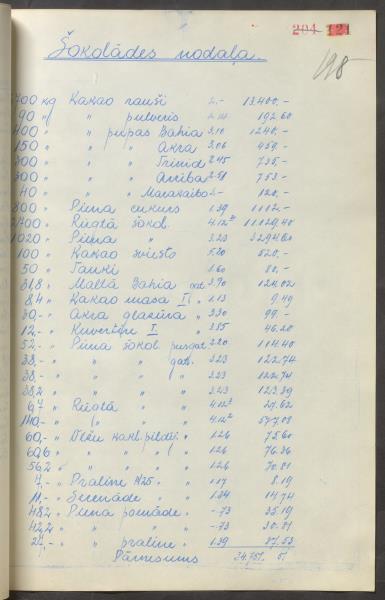 204 121
198
Šokolādes nodaļa.
700 kg Kakao rauši 2.- 13.400.-
90 " " pulveris 2.14 192.60
400 " " pupas Bahia 3.10 1240.-
150 " " " Akra 3.06 459.-
300 " " " Trinid 2.45 735.-
300 " " " Arriba 2.51 753.-
40 " " " Maracaibo 120.-
800 " Piena cukurs 1.39 1112.-
2700 " Rūgtā šokol. 11.029.40
1020 " Piena " 3.23 3294.60
100 " Kakao sviests 5.20 520.-
50 " Tauki 1.60 80.-
31,8 " Maltā Bahia 3.90 124.02
8,4 " Kakao masa II " 1.13 9.49
30,- " Akra glazūra " 3.30 99.-
12,- " Kuvertūre I " 3.85 46.20
52,- " Piena šokol. pusgat. 2.20 114.40
38,- " " " gat. 3.23 122.74
38,- " " " " 3.23 122.74
38,2 " " " " 3.23 123.39
6,7 " Rūgtā " " 27.62
140,- " " " "
60,- " " 1.26 75.60
60,6 " " " " 1.26 76.36
56,2 " " " " 1.26 70.81
7,- " Praline " 1.17 8.19
11,- " Serenāde " " 1.34 14.74
48,2 " Piena pomāde " -.73 35.19
42,2 " " " " -.73 30.81
" " praline " 1.39
Pārnesums